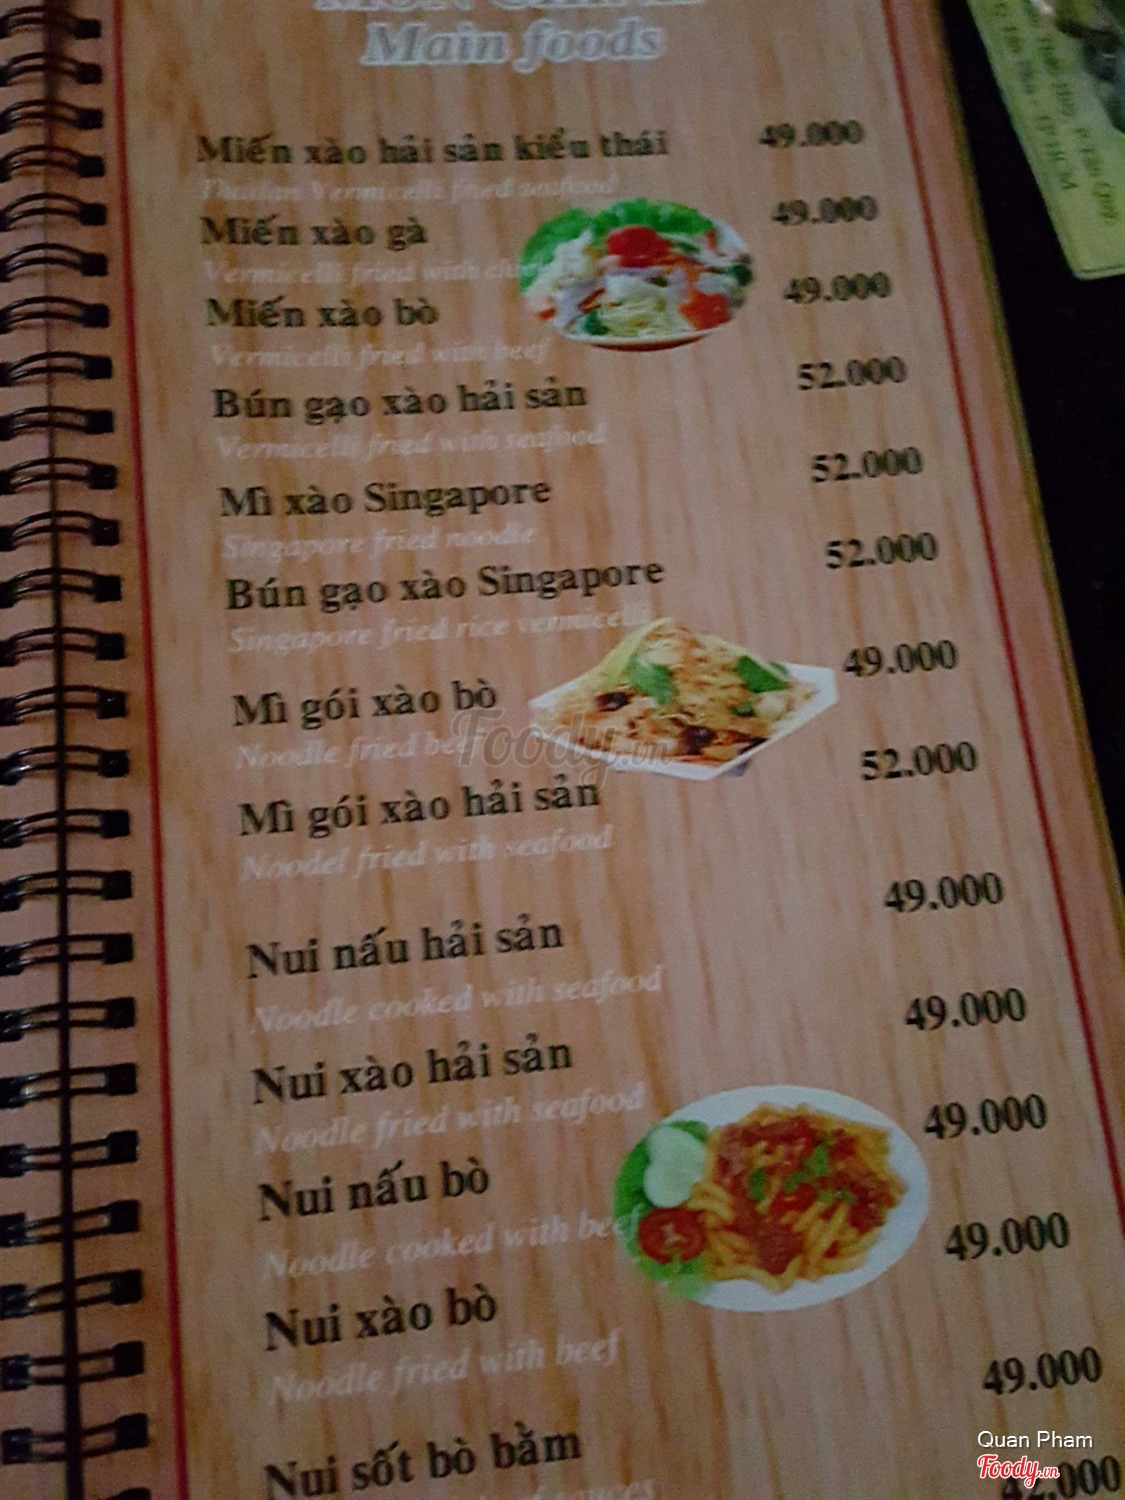 Main foods
Miến xào hải sản kiểu thái 49.000
Thailan Vermicelli fried seafood
Miến xào gà 49.000
Vermicelli fried with
Miến xào bò 49.000
Vermicelli fried with beef
Bún gạo xào hải sản 52.000
Vermicelli fried with seafood
Mì xào Singapore 52.000
Singapore fried noodle
Bún gạo xào Singapore 52.000
Singapore fried rice vermicelli
Mì gói xào bò 49.000
Noodle fried beef
Foody.vn
Mì gói xào hải sản 52.000
Noodel fried with seafood
Nui nấu hải sản 49.000
Noodle cooked with seafood
Nui xào hải sản 49.000
Noodle fried with seafood
Nui nấu bò 49.000
Noodle cooked with beef
Nui xào bò 49.000
Noodle fried with beef
Nui sốt bò bằm 49.000
Quan Pham
Foody.vn